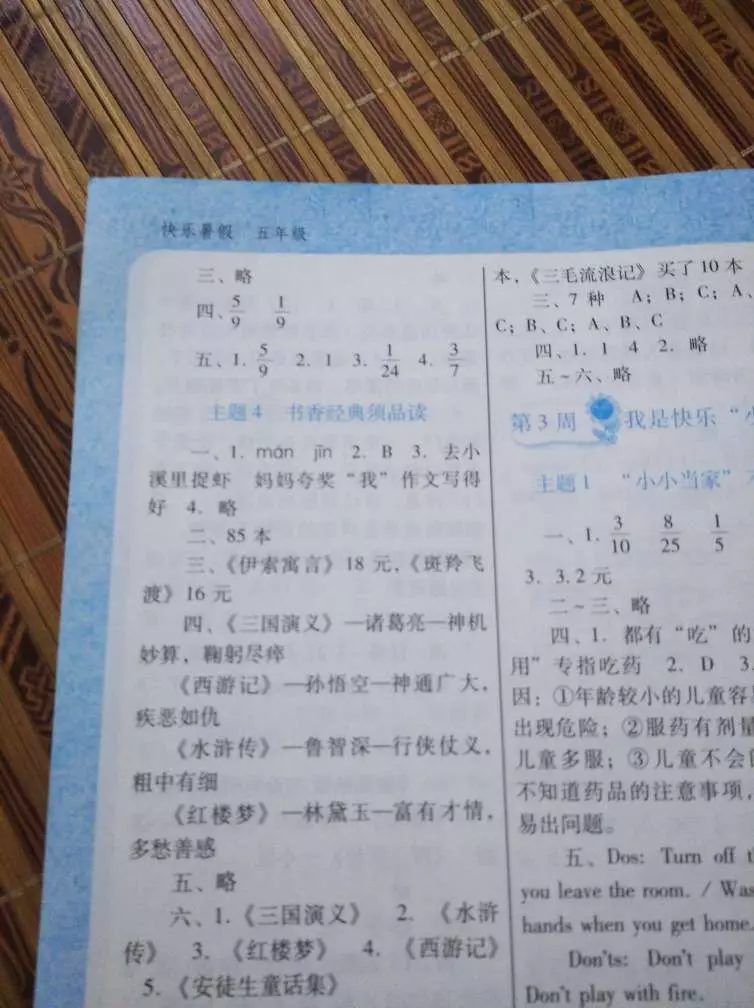 快乐暑假 五年级
三、略
四、5/9 1/9
五、1. 5/9 2. 1 3. 1/24 4. 3/7
主题4 书香经典须品读
一、1. mán jīn 2. B 3. 去小
溪里捉虾 妈妈夸奖“我”作文写得
好 4. 略
二、85本
三、《伊索寓言》18元，《斑羚飞
渡》16元
四、《三国演义》—诸葛亮—神机
妙算，鞠躬尽瘁
《西游记》—孙悟空—神通广大，
疾恶如仇
《水浒传》—鲁智深—行侠仗义，
粗中有细
《红楼梦》—林黛玉—富有才情，
多愁善感
五、略
六、1.《三国演义》 2.《水浒
传》 3.《红楼梦》 4.《西游记》
5.《安徒生童话集》
本，《三毛流浪记》买了10本
三、7种 A；B；C；A、
C；B、C；A、B、C
四、1. 1 4 2. 略
五~六、略
第3周 我是快乐“小
主题1 “小小当家”
一、1. 3/10 8/25 1/5
3. 3.2元
二~三、略
四、1. 都有“吃”的
用”专指吃药 2. D 3.
因：①年龄较小的儿童容易
出现危险；②服药有剂量
儿童多服；③儿童不会
不知道药品的注意事项，
易出问题。
五、Dos: Turn off
you leave the room. / Was
hands when you get home.
Don'ts: Don't play
Don't play with fire.